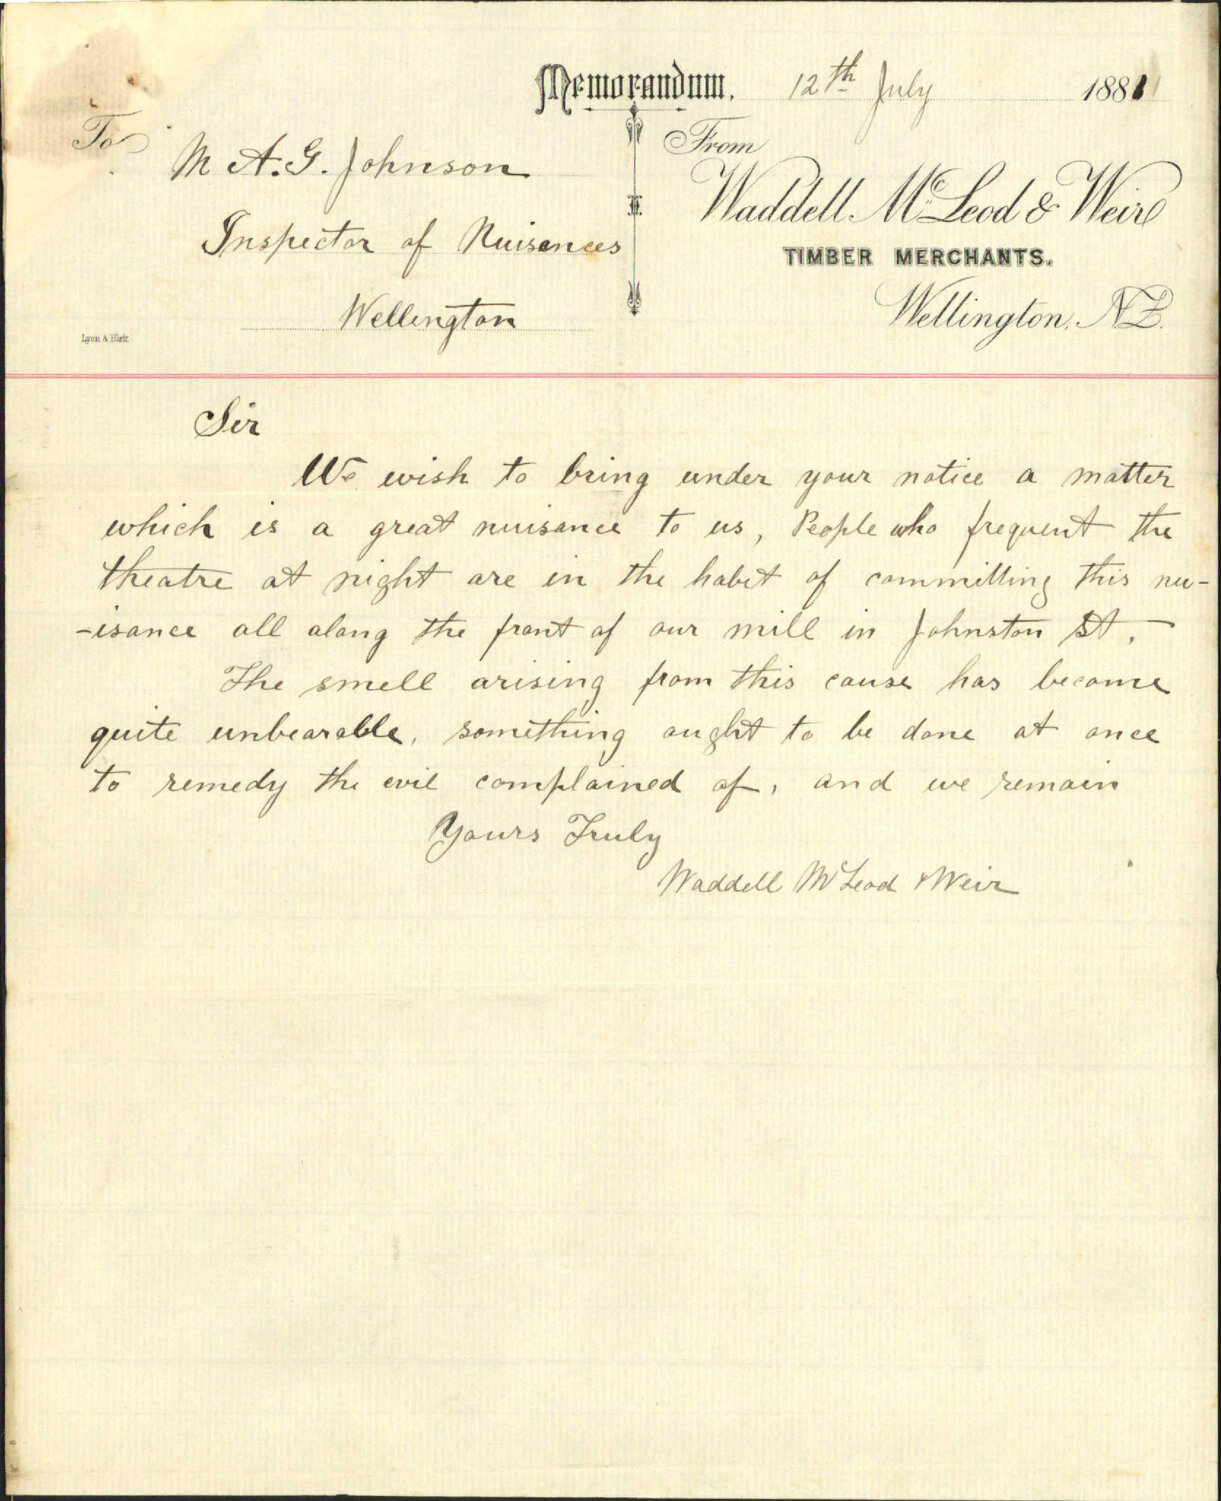 Memorandum. 12th July 1881
To
M A. G. Johnson
Inspector of Nuisances
Wellington
From
Waddell McLeod & Weir
TIMBER MERCHANTS.
Wellington, N.Z.
Lyon & Blair
Sir
We wish to bring under your notice a matter
which is a great nuisance to us, People who frequent the
theatre at night are in the habit of committing this nu-
-isance all along the front of our mill in Johnston St.
The smell arising from this cause has become
quite unbearable, something ought to be done at once
to remedy the evil complained of, and we remain
Yours Truly
Waddell McLeod & Weir